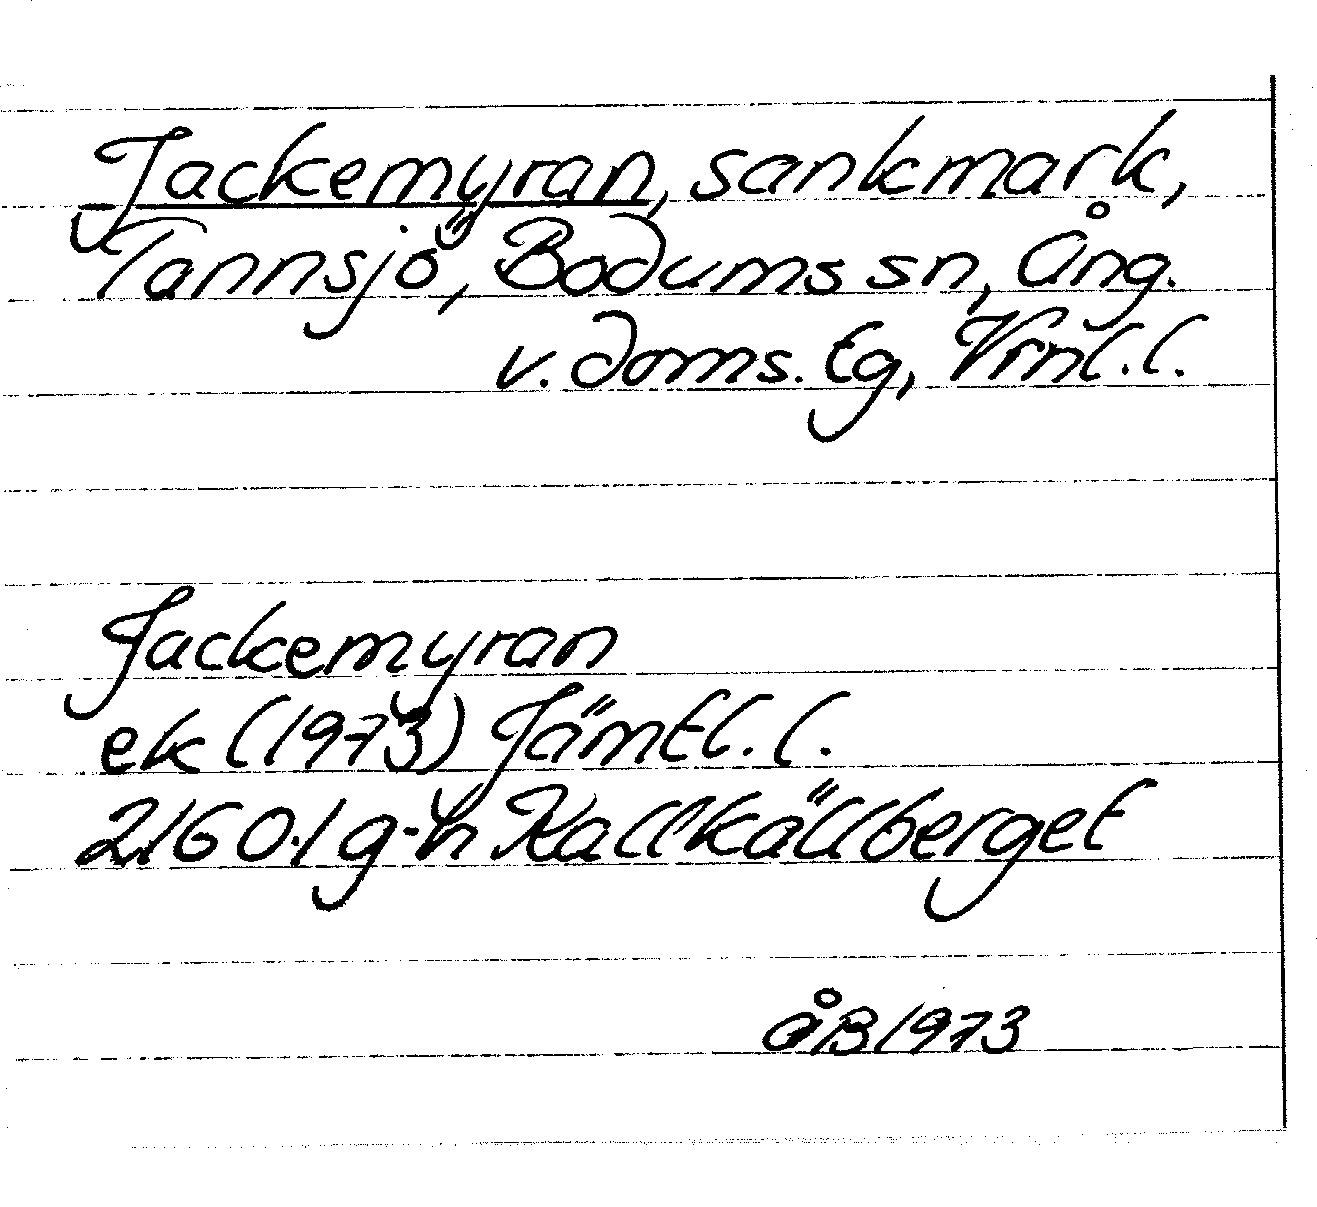 Jackemyran, sankmark,
Tannsjö, Bodums sn, Ång.
v. doms. tg, Vrnl. l.
Jackemyran
ek (1973) Jämtl. l.
2160.1 g-h Kallkällberget
ÅB 1973